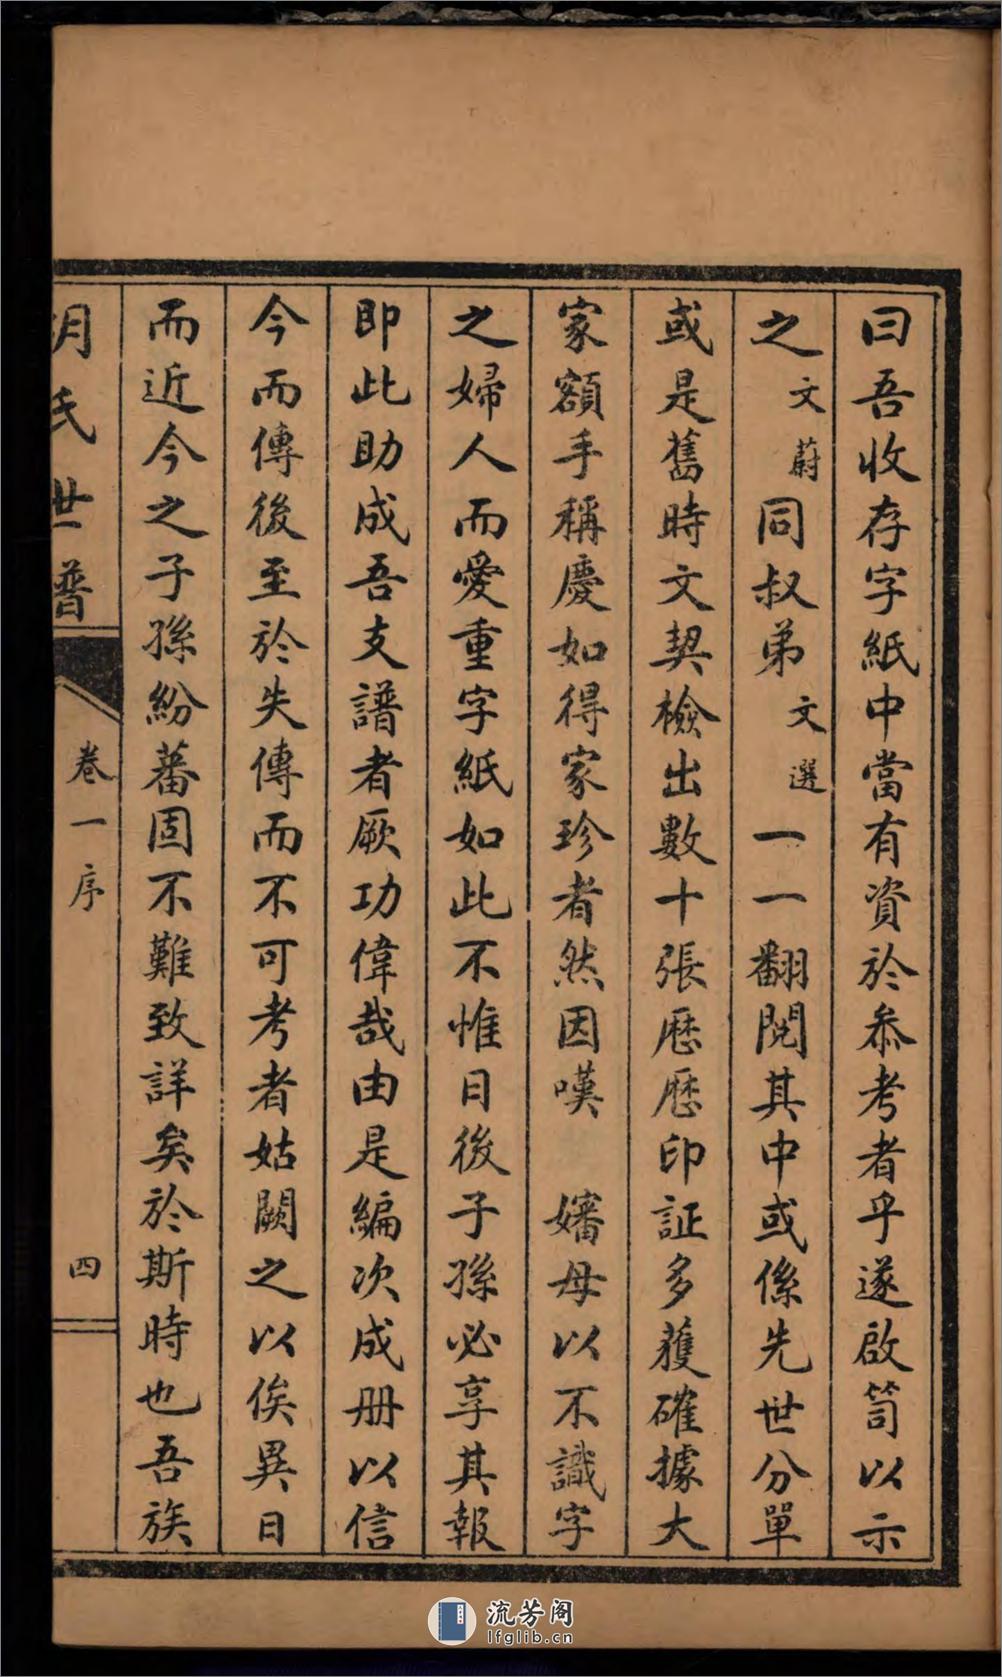 曰吾收存字紙中當有資於叅考者乎遂啟笥以示
之文蔚同叔弟文選一一翻閱其中或係先世分單
或是舊時文契檢出數十張歷歷印証多獲確據大
家額手稱慶如得家珍者然因嘆　嬸母以不識字
之婦人而愛重字紙如此不惟日後子孫必享其報
即此助成吾支譜者厥功偉哉由是編次成册以信
今而傳後至於失傳而不可考者姑闕之以俟異日
而近今之子孫紛蕃固不難致詳矣於斯時也吾族
胡氏世譜
卷一序
四
流芳阁
lfglib.cn